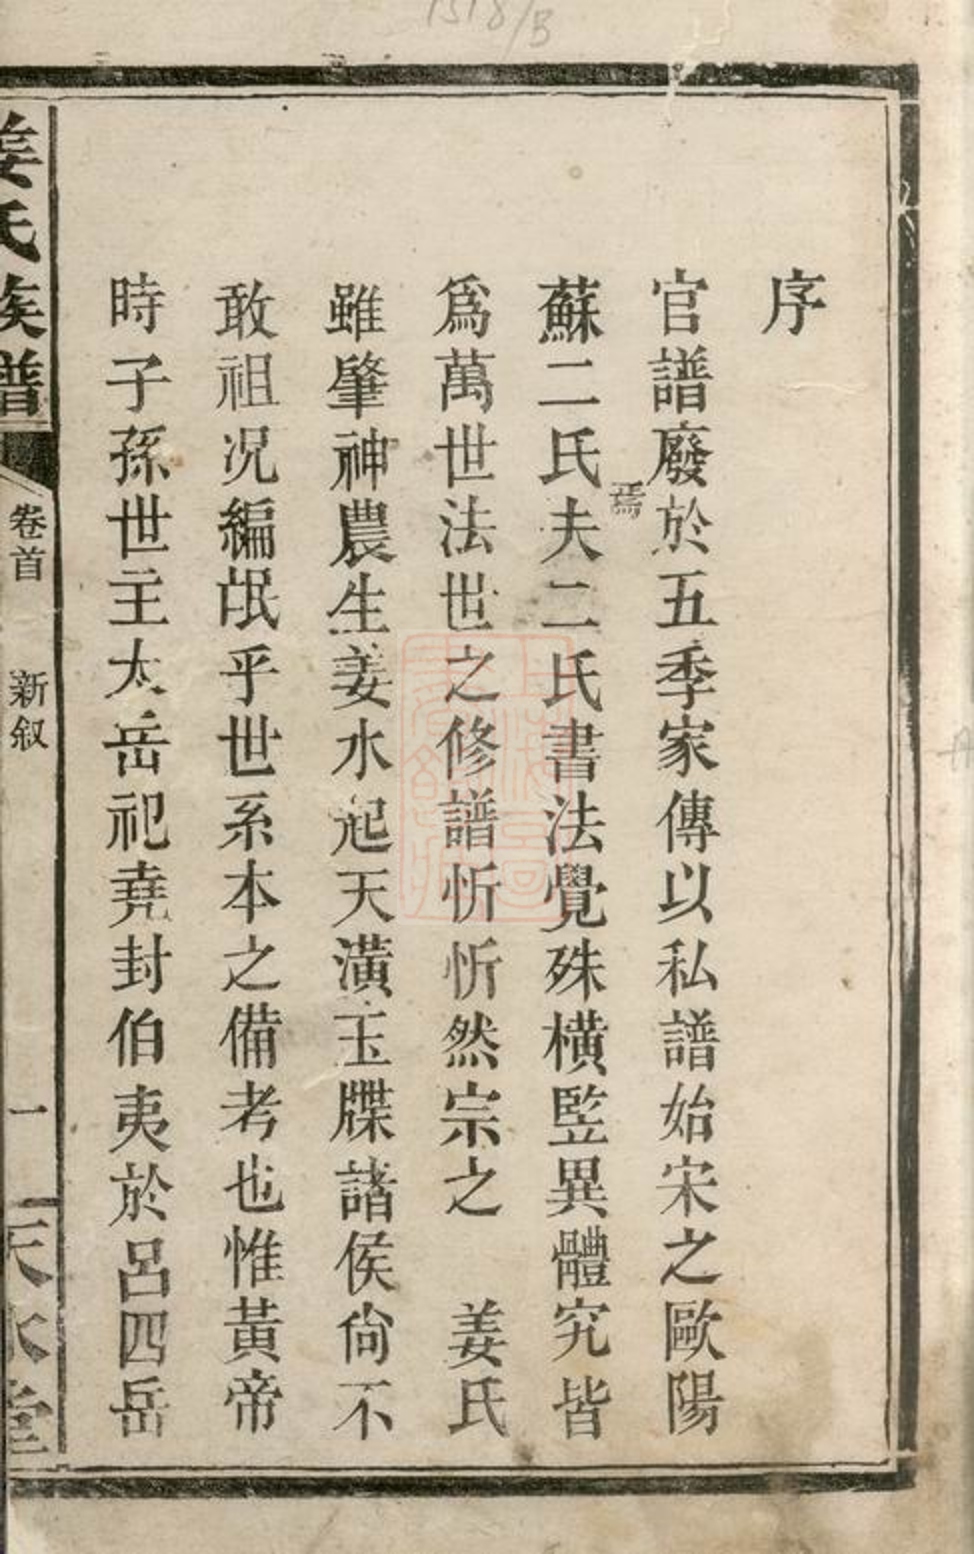 1518/B
序
官譜廢於五季家傳以私譜始宋之歐陽
焉
蘇二氏夫二氏書法覺殊橫竪異體究皆
爲萬世法世之修譜忻忻然宗之　姜氏
雖肇神農生姜水起天潢玉牒諸侯尙不
敢祖况編氓乎世系本之備考也惟黃帝
時子孫世主太岳祀堯封伯夷於呂四岳
姜氏族譜
卷首　新叙
一
天水堂
上海圖書館藏